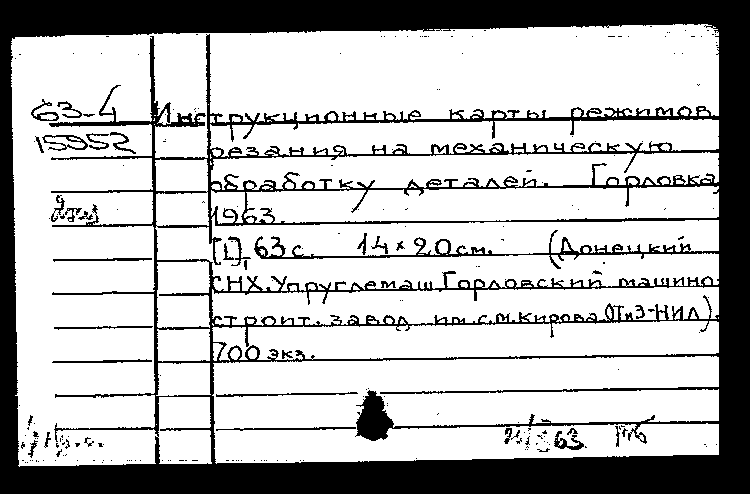 63-4 Инструкционные карты режимов
15952 резания на механическую
обработку деталей. Горловка,
2экз 1963.
[1], 63 с. 14×20 см. (Донецкий
СНХ. Упруглемаш. Горловский машино-
строит. завод им. с.м. Кирова. ОТиЗ-НИЛ).
700 экз.
63